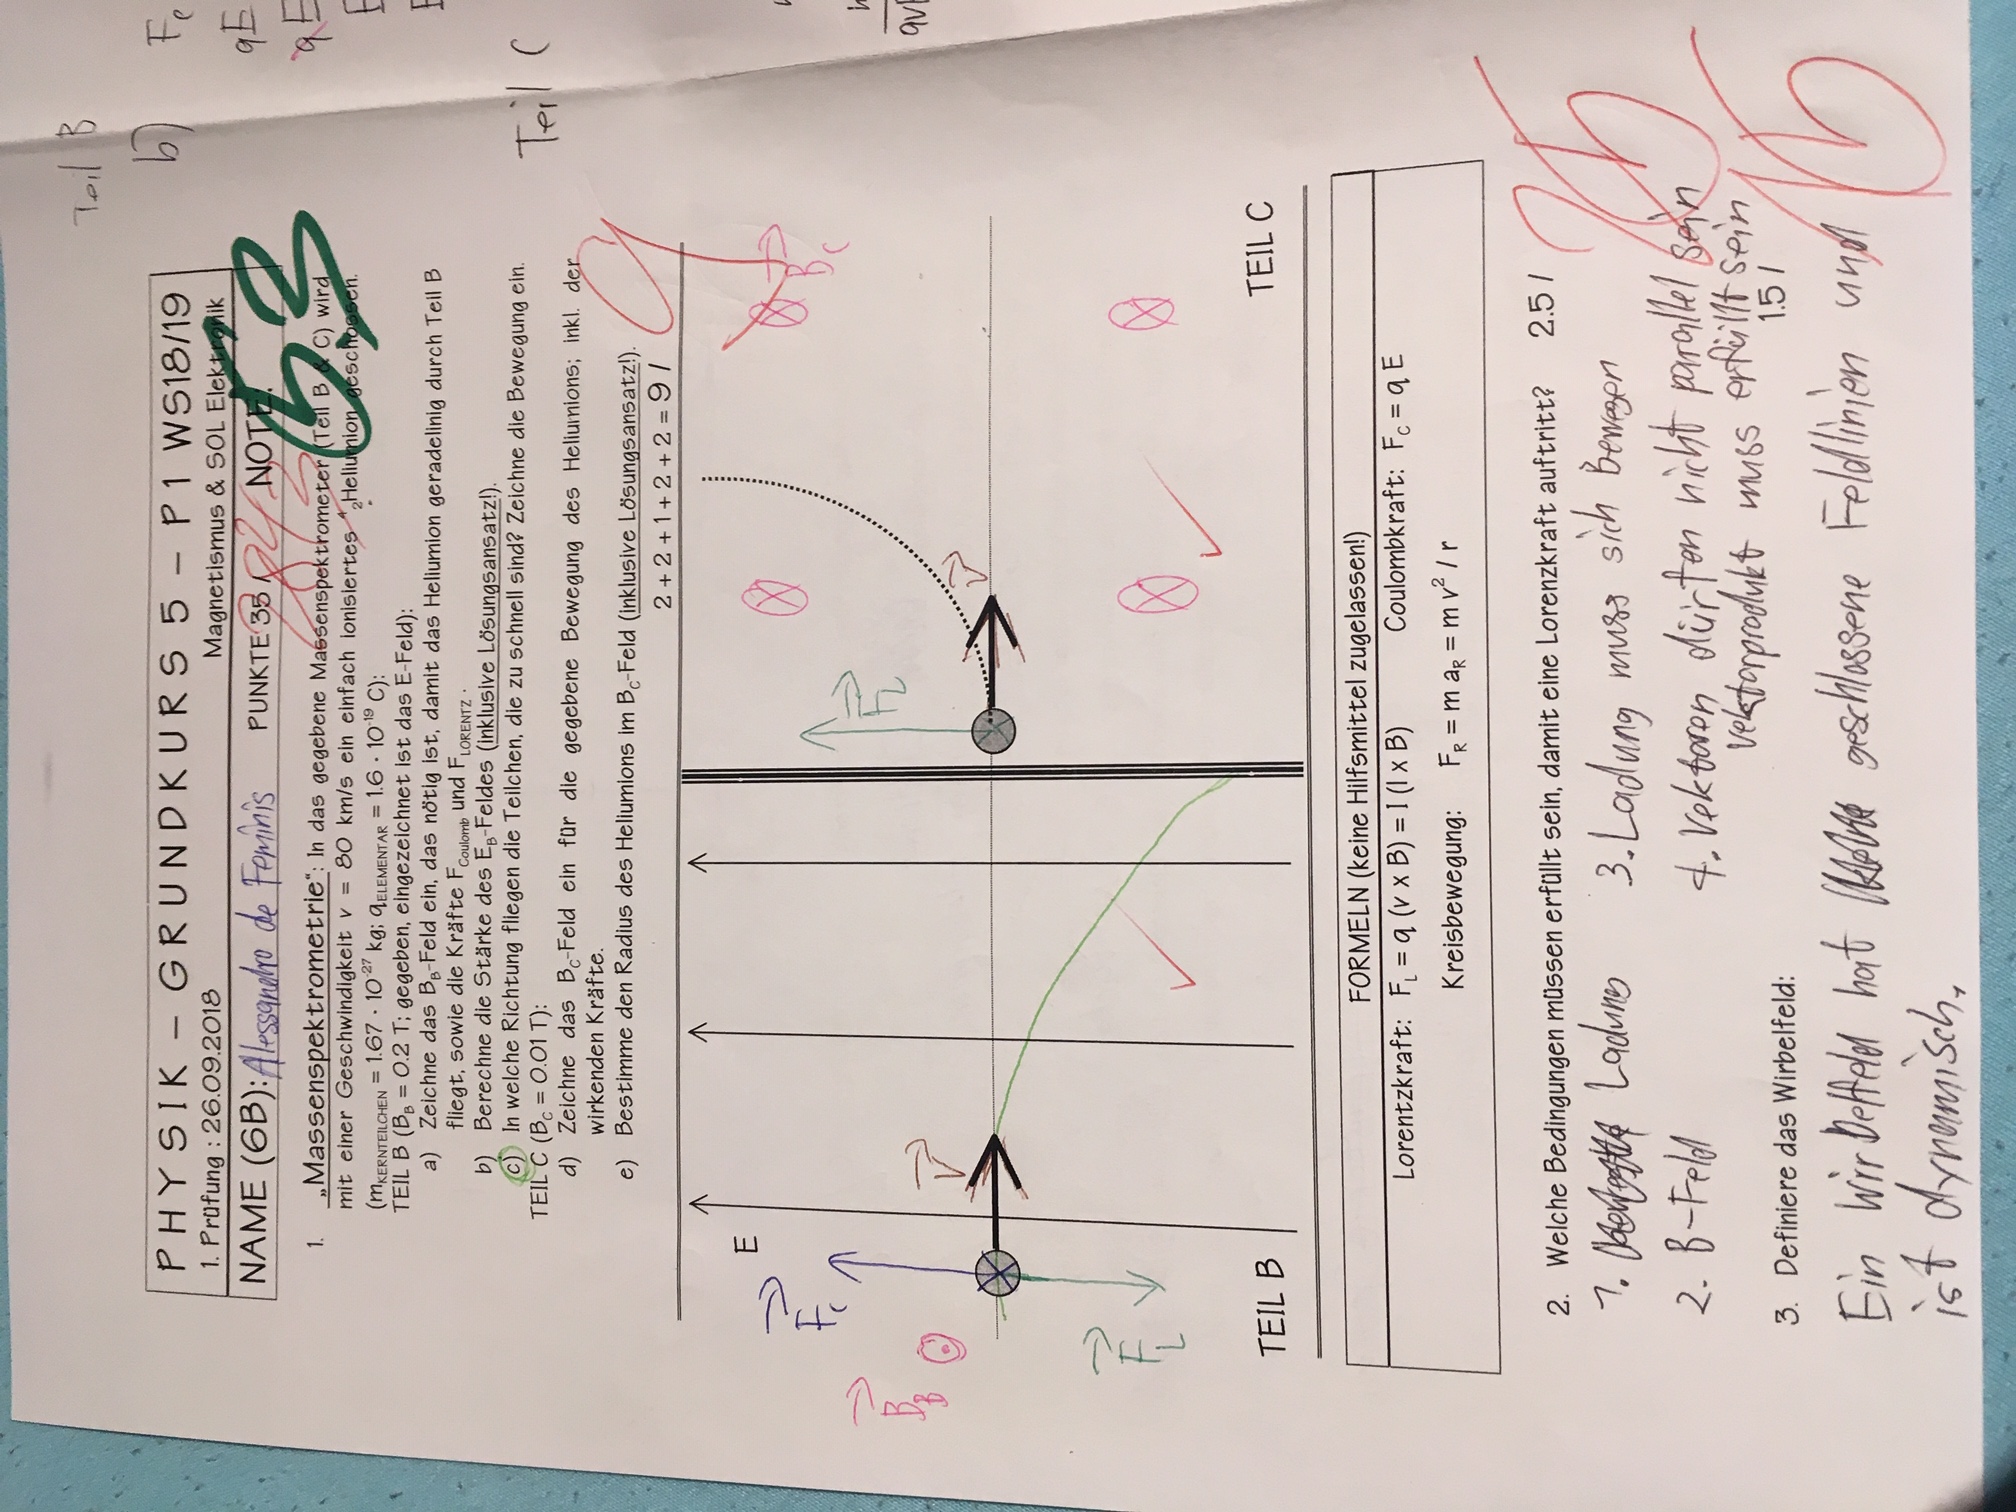 PHYSIK – GRUNDKURS 5 – P1 WS18/19
1. Prüfung : 26.09.2018 Magnetismus & SOL Elektronik
NAME (6B): Alessandro de Feminis PUNKTE 35 / NOTE: 5.3
1. „Massenspektrometrie“: In das gegebene Massenspektrometer (Teil B & C) wird
mit einer Geschwindigkeit v = 80 km/s ein einfach ionisiertes ⁴₂Heliumion geschossen.
(mKERNTEILCHEN = 1.67 · 10⁻²⁷ kg; qELEMENTAR = 1.6 · 10⁻¹⁹ C):
TEIL B (BB = 0.2 T; gegeben, eingezeichnet ist das E-Feld):
a) Zeichne das BB-Feld ein, das nötig ist, damit das Heliumion geradelinig durch Teil B
fliegt, sowie die Kräfte FCoulomb und FLORENTZ .
b) Berechne die Stärke des EB-Feldes (inklusive Lösungsansatz!).
c) In welche Richtung fliegen die Teilchen, die zu schnell sind? Zeichne die Bewegung ein.
TEIL C (BC = 0.01 T):
d) Zeichne das BC-Feld ein für die gegebene Bewegung des Heliumions; inkl. der
wirkenden Kräfte.
e) Bestimme den Radius des Heliumions im BC-Feld (inklusive Lösungsansatz!).
2 + 2 + 1 + 2 + 2 = 9 / 9
E
FC
BB
v
FL
TEIL B
BC
FL
v
TEIL C
FORMELN (keine Hilfsmittel zugelassen!)
Lorentzkraft: FL = q (v x B) = I (l x B) Coulombkraft: FC = q E
Kreisbewegung: FR = m aR = m v² / r
2. Welche Bedingungen müssen erfüllt sein, damit eine Lorenzkraft auftritt? 2.5 / 25
1. Ladung
2. B-Feld
3. Ladung muss sich Bewegen
4. Vektoren dürfen nicht parallel sein
Vektorprodukt muss erfüllt sein
3. Definiere das Wirbelfeld: 1.5 / 15
Ein Wirbelfeld hat geschlossene Feldlinien und
ist dynamisch.
Teil B
b) Fc
qE
qE
E
E
Teil C